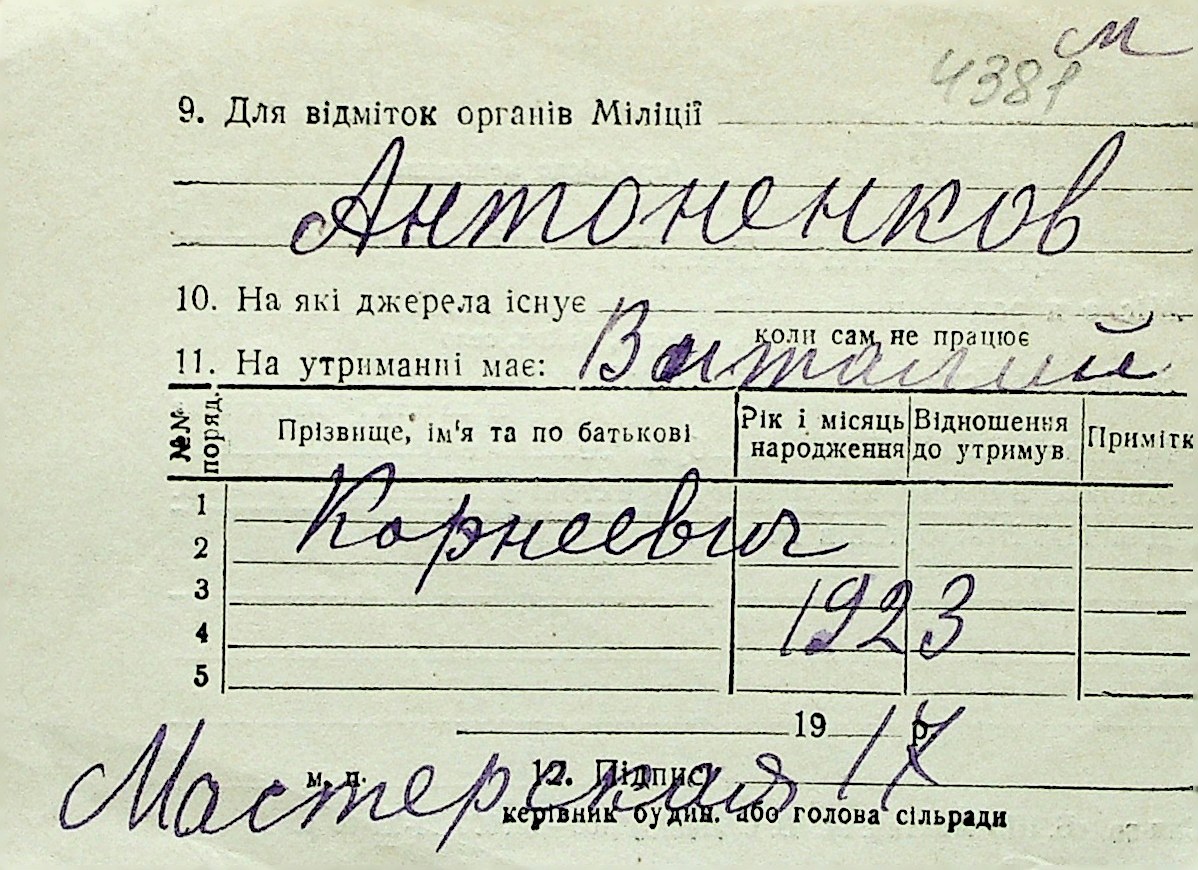 м
4381
9. Для відміток органів Міліції
Антоненков
10. На які джерела існує
коли сам не працює
11. На утриманні має: Виталий
№№ поряд. Прізвище, ім'я та по батькові Рік і місяць народження Відношення до утримув. Примітк
1
Корнеевич
2
3
1923
4
5
19 р.
Мастерская 17
м. п. 12. Підпис
керівник будин. або голова сільради